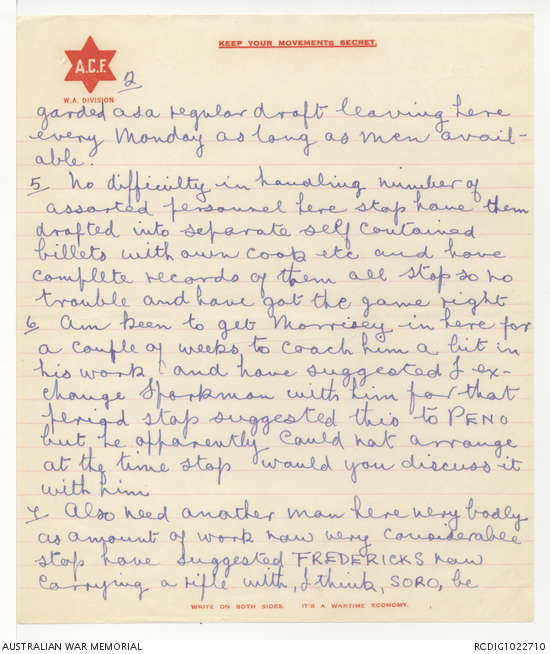 KEEP YOUR MOVEMENTS SECRET.
A.C.F.
W.A. DIVISION
2
garded as a regular draft leaving here
every Monday as long as men avail-
able.
5 No difficulty in handling number of
assorted personnel here stop have them
drafted into separate self contained
billets with own cook etc and have
complete records of them all stop so no
trouble and have got the game right
6 Am keen to get Morrisey in here for
a couple of weeks to coach him a bit in
his work and have suggested I ex-
change Sparkman with him for that
period stop suggested this to PENO
but he apparently could not arrange
at the time stop would you discuss it
with him
7 Also need another man here very badly
as amount of work now very considerable
stop have suggested FREDERICKS now
carrying a rifle with, I think, SORO, be
WRITE ON BOTH SIDES. IT'S A WARTIME ECONOMY.
AUSTRALIAN WAR MEMORIAL
RCDIG1022710